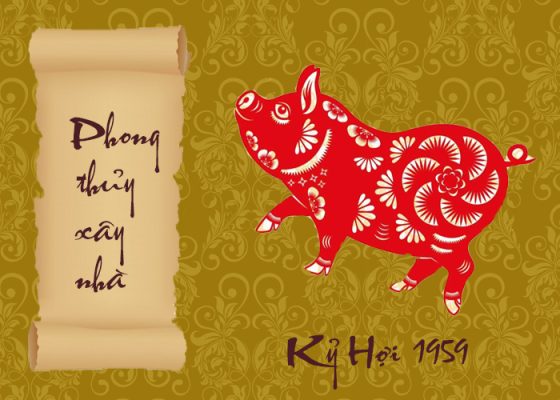 Phong
thủy
xây
nhà
Kỷ Hợi 1959